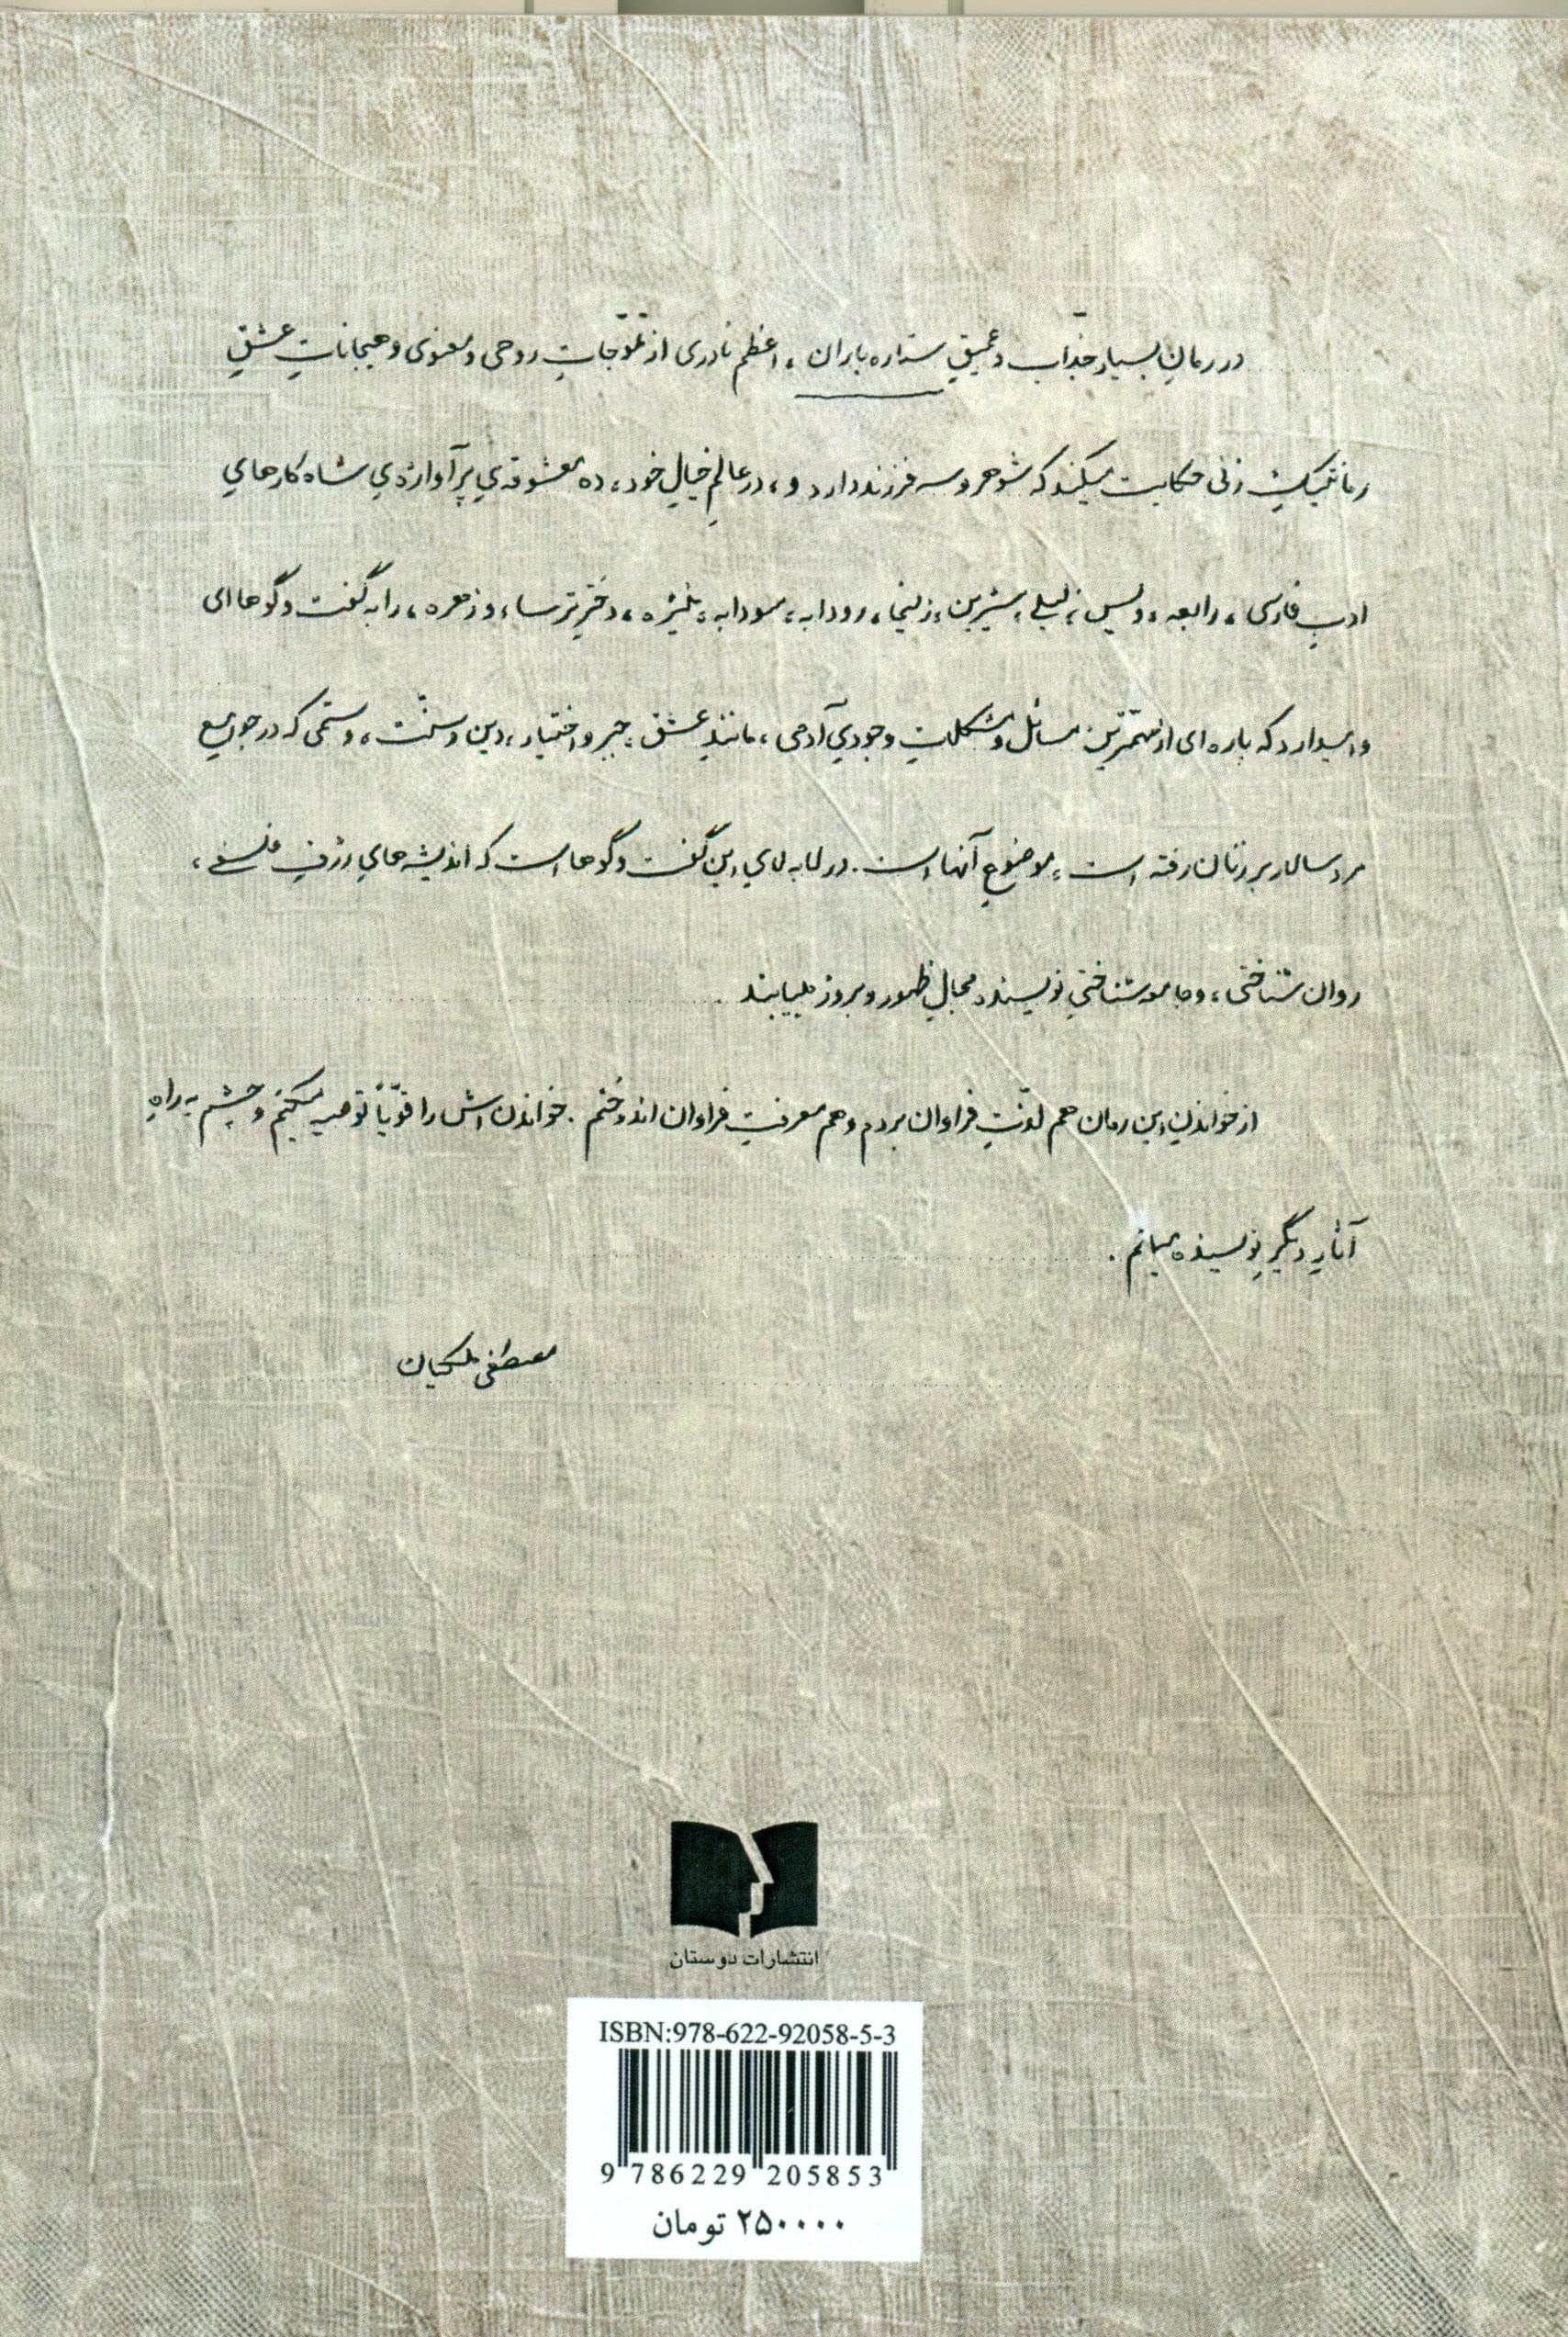 در رمانِ بسیار جذّاب و عمیقِ ستاره باران، اعظم نادری از تموّجاتِ روحی و معنوی و هیجاناتِ عشقِ
رمانتیکِ زنی حکایت میکند که شوهر و سه فرزند دارد و، در عالمِ خیالِ خود، ده معشوقه‌ي پرآوازه‌ي شاه کارهاي
ادبِ فارسی، رابعه، ویس، لیلی، شیرین، زلیخا، رودابه، سودابه، منیژه، دخترِ ترسا، و زهره، را به گفت و گوهاای
وا میدارد که پاره‌ای از مهمّترین مسائل و مشکلاتِ وجوديِ آدمی، مانندِ عشق، جبر و اختیار، دین و سنّت، و ستمی که در جوامعِ
مردسالار بر زنان رفته است، موضوعِ آنها است. در لابه لايِ این گفت و گوها است که اندیشه‌هايِ ژرفِ فلسفی،
روان شناختی، و جامعه شناختيِ نویسنده مجالِ ظهور و بروز مییابند.
از خواندنِ این رمان هم لذّتِ فراوان بردم و هم معرفتِ فراوان اندوختم. خواندن‌اش را قویّاً توصیه میکنم و چشم به راهِ
آثارِ دیگرِ نویسنده میمانم.
مصطفی ملکیان
انتشارات دوستان
ISBN:978-622-92058-5-3
9 786229 205853
۲۵۰۰۰۰ تومان